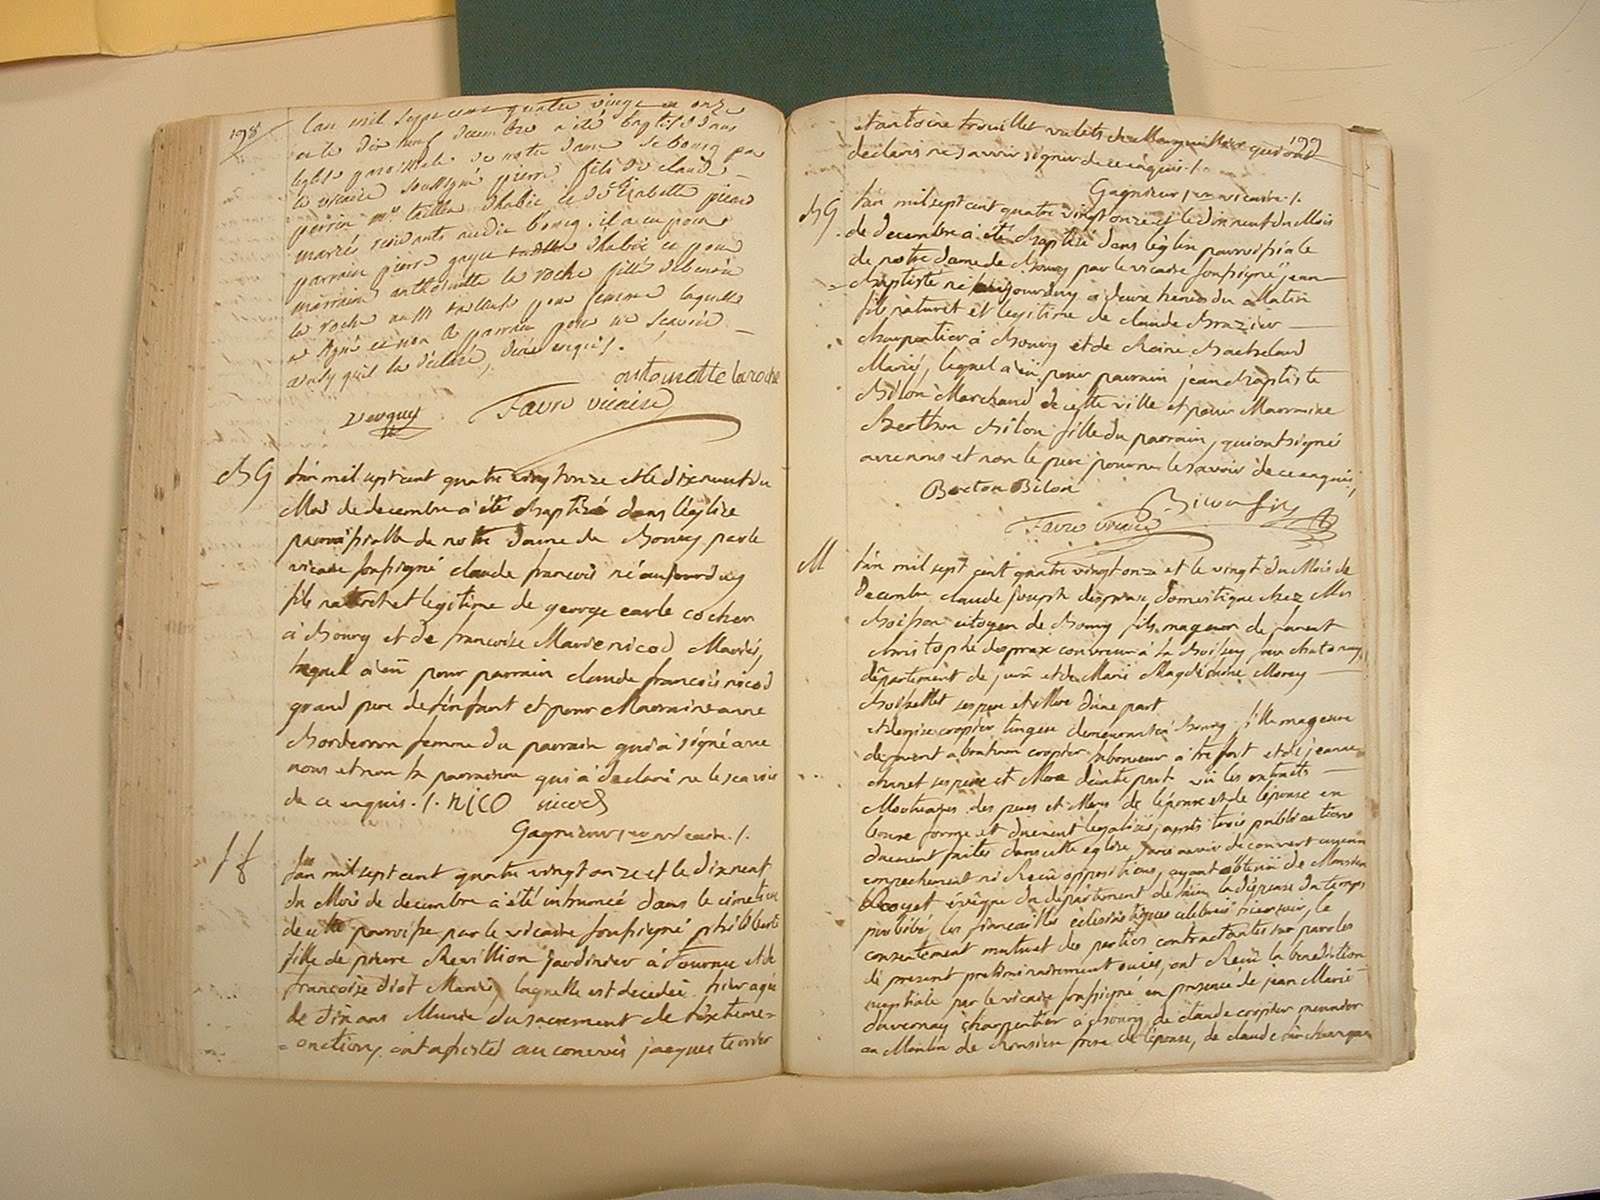 198
l'an mil sept cent quatre vingt et onze
et le dix neuf decembre a été baptisé dans
leglise paroissiale de notre dame de bourg par
le vicaire soussigné pierre fils de claude
perrin mre tailleur d'habit et de Elizabette
mariés residants au dit bourg. il a eu pour
parrain pierre gayet tailleur d'habit et pour
marraine anthoinette la roche fille de benoit
la roche aussi tailleur pour femme laquelle
a signé et non le parrain pour ne scavoir
ainsy qu'il l'a déclaré, de ce enquis.
antoinette laroche
Favre vicaire
BG l'an mil sept cent quatre vingt onze et le dix neuf du
Mois de decembre a été Baptisé dans l'église
parroissialle de notre dame de Bourg par le
vicaire soussigné claude francois né aujourduy
fils naturel et legitime de george carle cocher
à Bourg et de francoise Marie nicod Mariés,
lequel a eü pour parrain claude francois nicod
grand pere de l'enfant et pour Marraine anne
femme du parrain qui a signé avec
nous et non la marraine qui a declaré ne le scavoir
de ce enquis ./. NiCO nicod
Gagnieur vicaire ./.
Sf l'an mil sept cent quatre vingt onze et le dix neuf
du Mois de decembre a été inhumé dans le cimetiere
de cette paroisse par le vicaire soussigné philiberte
fille de pierre Revillion jardinier à et de
francoise diot Mariés laquelle est decedée hier agée
de dix ans Munie du sacrement de l'extreme-
onction, ont assistés au convois jacques
199
et antoine trouillet valets de Marguilliers qui ont
declarés ne savoir signer de ce enquis ./.
Gagnieur vicaire ./.
BG l'an mil sept cent quatre vingt onze et le dix neuf du Mois
de decembre a été Baptisé dans l'église parroissiale
de notre dame de Bourg par le vicaire soussigné jean
Baptiste né aujourduy à deux heures du Matin
fils naturel et legitime de claude Brazier
charpentier à Bourg et de Reine Bachelard
Mariés, lequel a eü pour parrain jean Baptiste
Bilon Marchand de cette ville et pour Marraine
Berthon Bilon fille du parrain, qui ont signés
avec nous et non le pere pour ne le savoir de ce enquis,
Berton Bilon
Bilon fils
Favre vicaire
M l'an mil sept cent quatre vingt onze et le vingt du Mois de
Decembre claude joseph desprax domestique chez Mr
Boisson citoyen de Bourg fils mageur de furent
christophe desprax couvreur à la Boissey
département de jura et de Marie Magdelaine Morey
ses pere et Mere d'une part
et denise coopier lingere demeurante à Bourg fille mageure
de furent abraham coopier laboureur à trefort et de jeanne
ses pere et Mere d'autre part vü les extraits
Mortuaires des peres et Meres de l'époux et de l'épouse en
bonne forme et duement legalisés, après trois publications
duement faites dans cette eglise sans avoir decouvert aucun
empechement ni Recü oppositions, ayant obtenü de Monsieur
Royer évêque du département de l'ain la dispense du temps
prohibé, les fiancailles eclesiastiques celebrées hier soir, le
consentement mutuel des parties contractantes par paroles
de present preliminairement ouies, ont Recü la benediction
nuptiale par le vicaire soussigné en presence de jean Marie
duvernay charpentier à Bourg de claude coopier meunier
au Moulin de frere de l'épouse, de claude